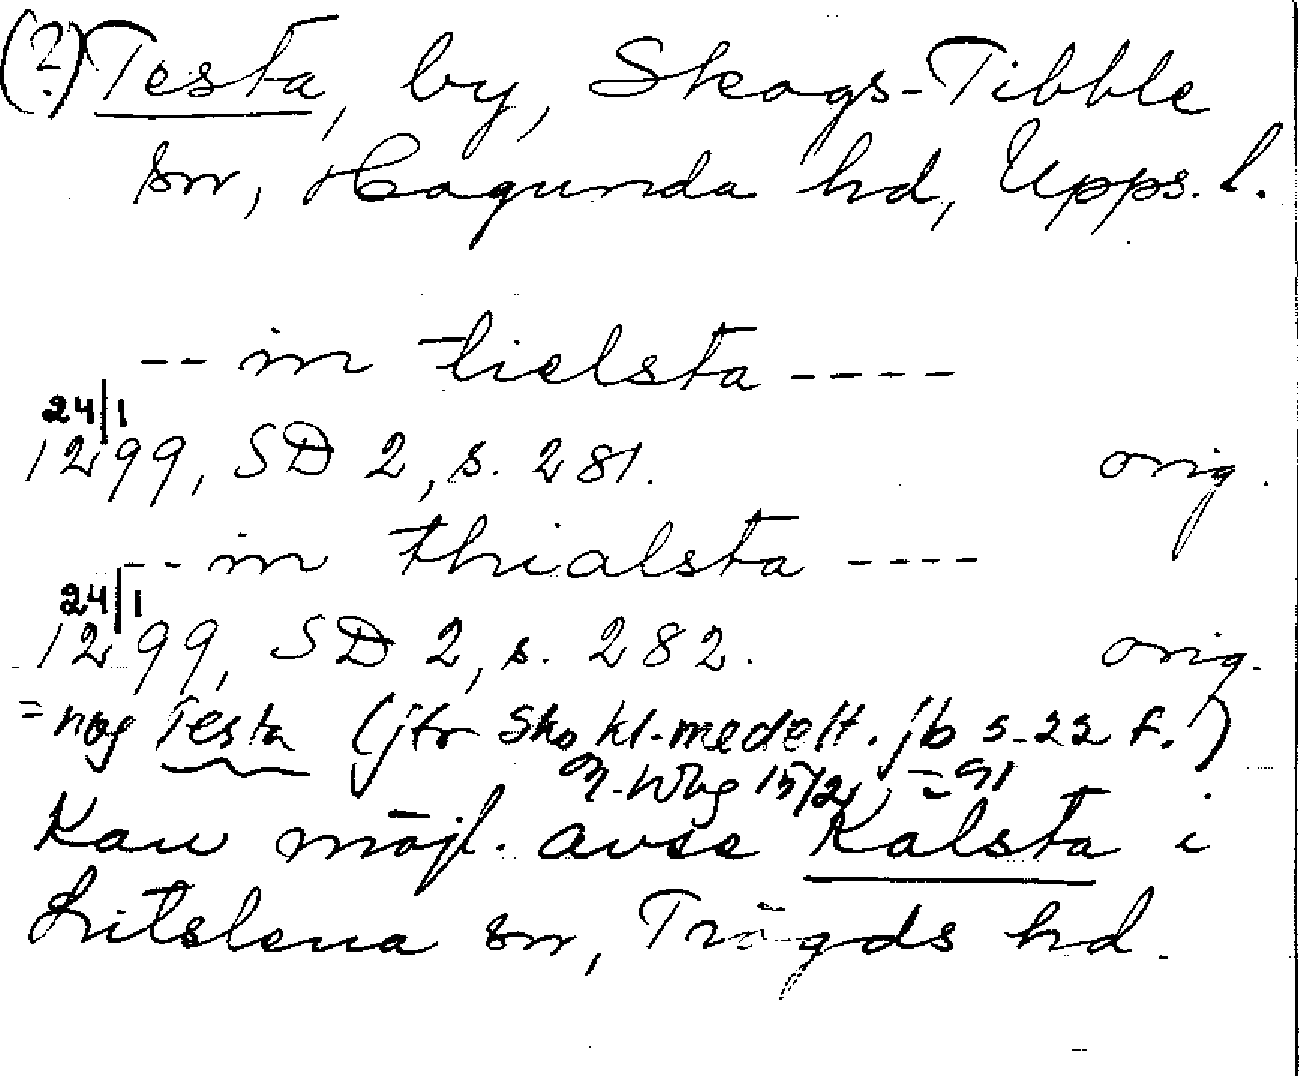 (?) Testa, by, Skogs-Tibble
sn, Hagunda hd, Upps. l.
-- in tielsta ----
24/1
1299, SD 2, s. 281. orig.
-- in thialsta ----
24/1
1299, SD 2, s. 282. orig.
= nog Testa (jfr Sko kl-medelt. jb s. 22 f.)
15/2 -91
Kan möjl. avse Kalsta i
Litslena sn, Trögds hd.